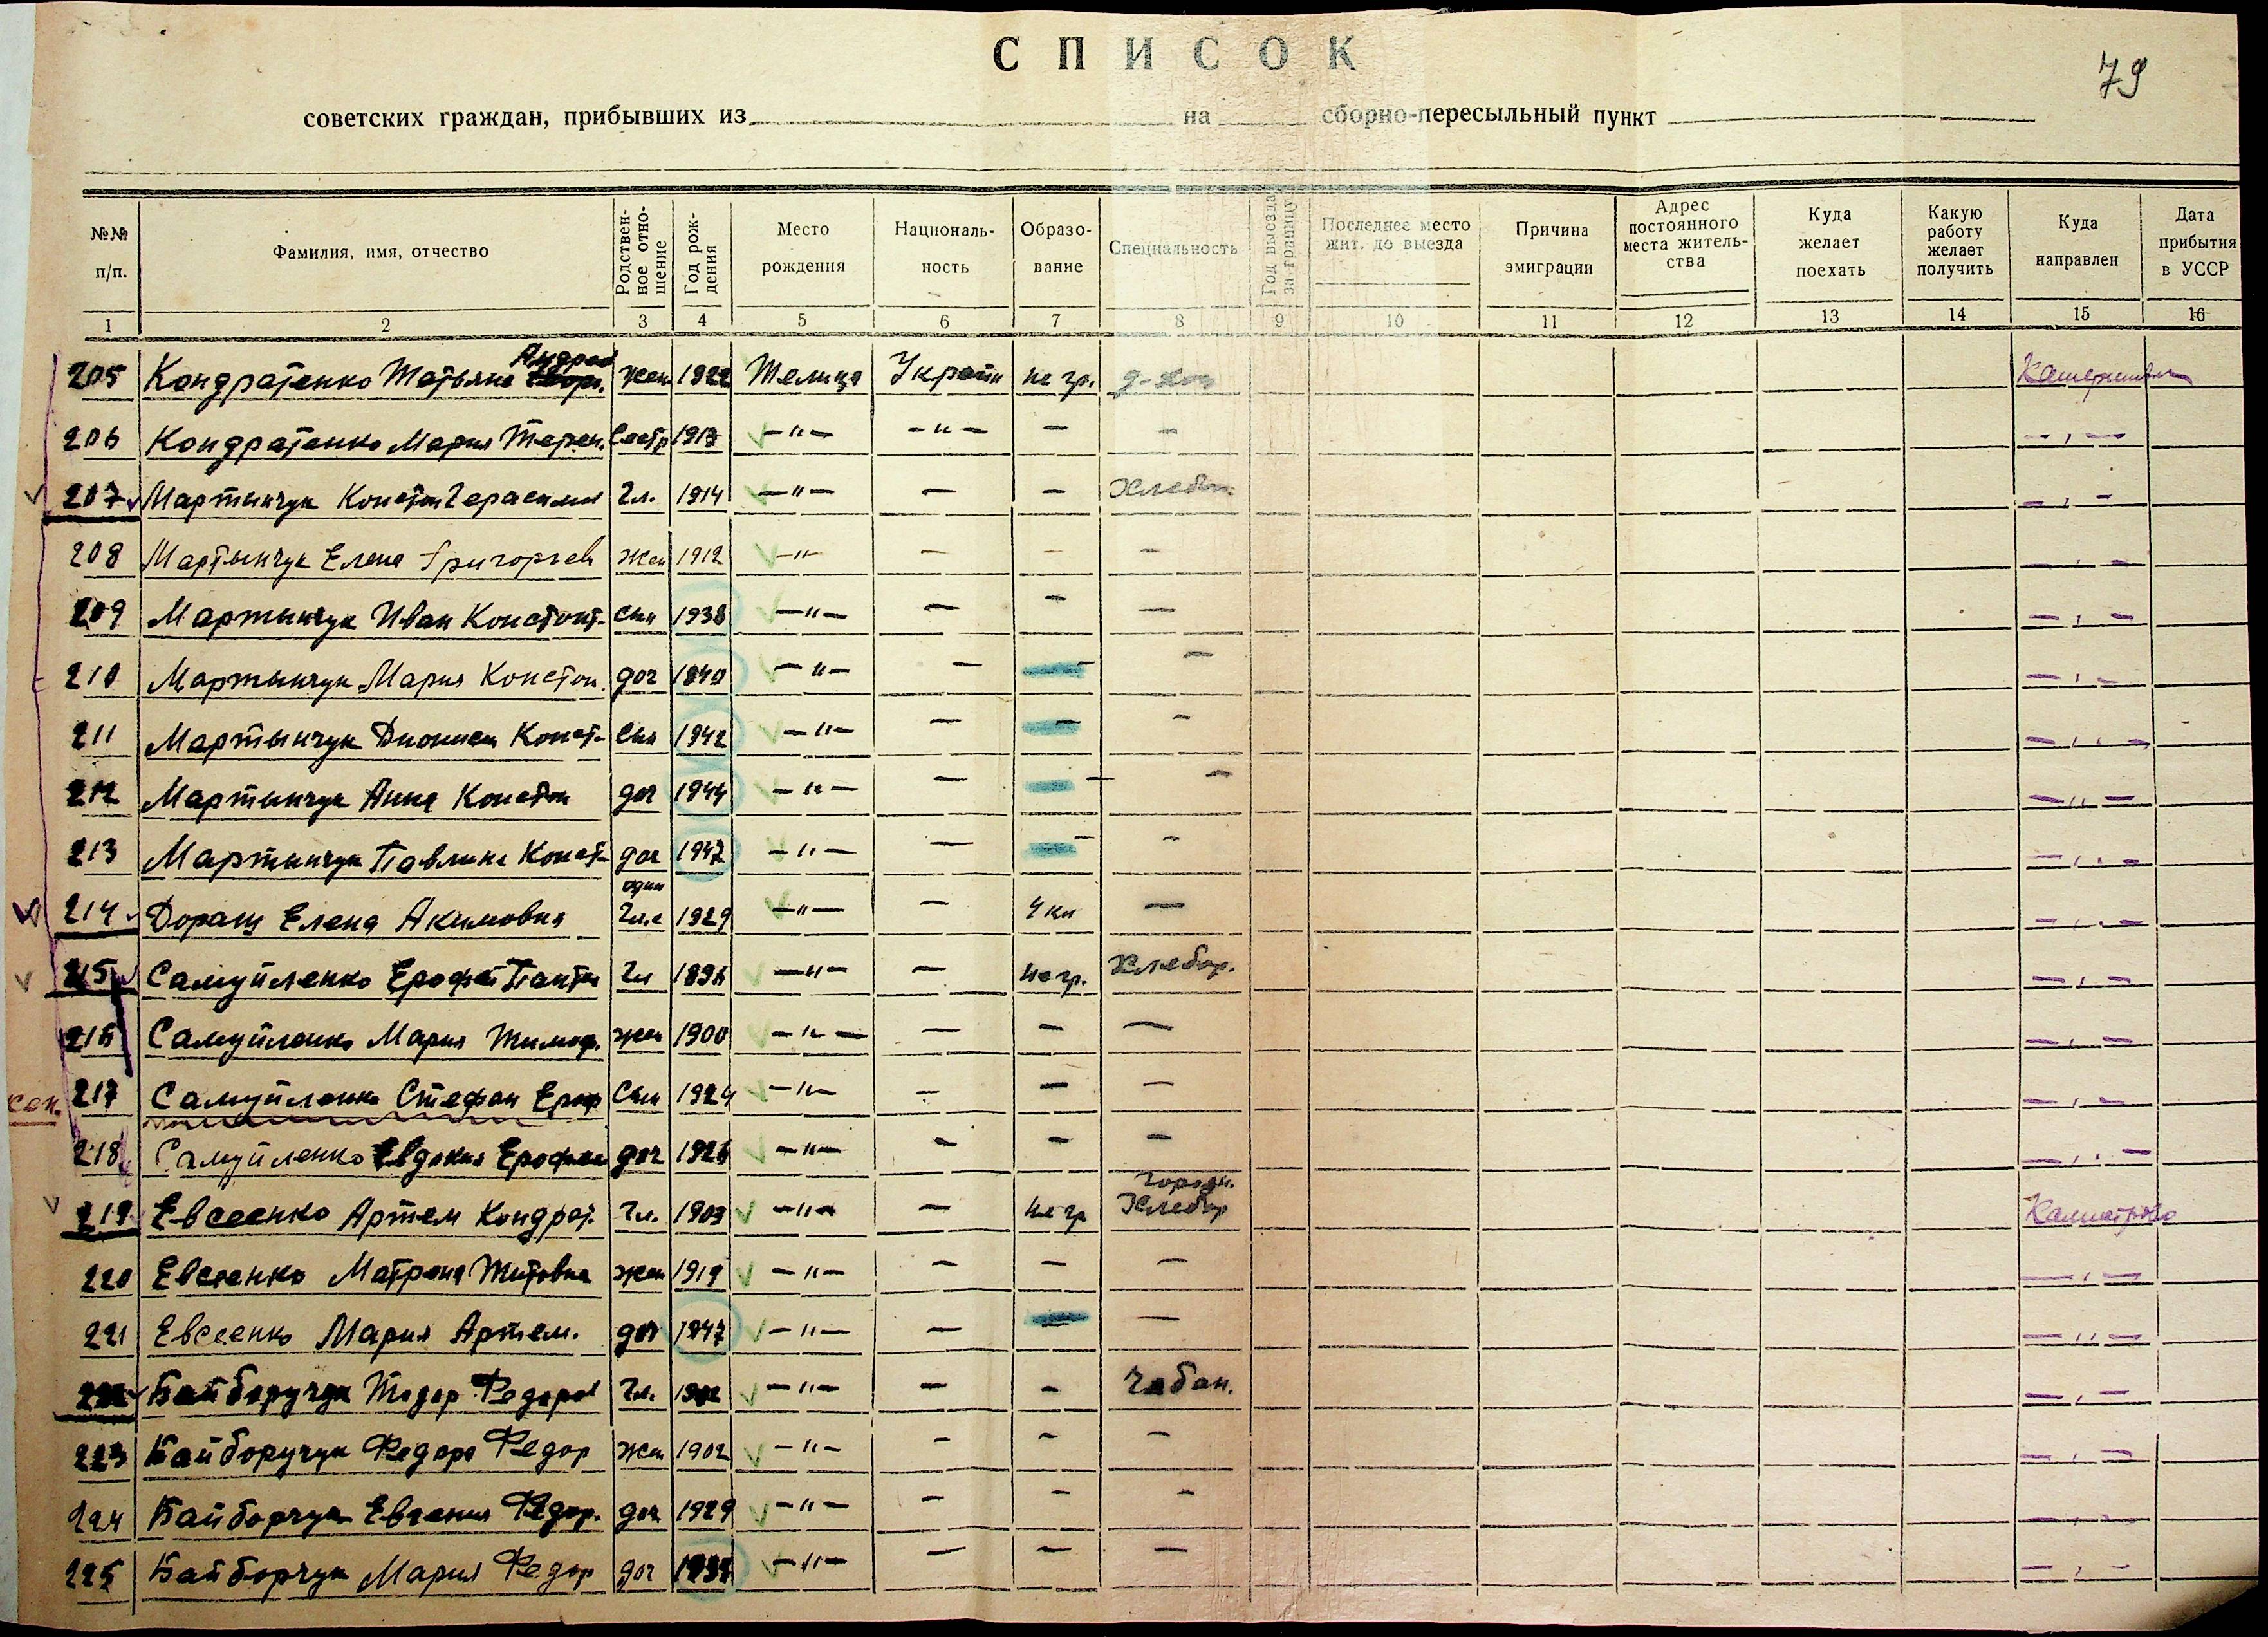 СПИСОК
79
советских граждан, прибывших из на сборно-пересыльный пункт
№№ п/п. Фамилия, имя, отчество Родствен-ное отно-шение Год рож-дения Место рождения Националь-ность Образо-вание Специальность Год выезда за границу Последнее место жит. до выезда Причина эмиграции Адрес постоянного места житель-ства Куда желает поехать Какую работу желает получить Куда направлен Дата прибытия в УССР
1 2 3 4 5 6 7 8 9 10 11 12 13 14 15 16
205 Кондратенко Татьяна Андреев жен 1922 Телица Украин негр. д-хоз
206 Кондратенко Мария Терен. Сестр 1913 —"— —"— — — —"—
207 Мартынчук Констан Герасимов Гл. 1914 —"— — — Хлебор. —"—
208 Мартынчук Елена Григорьев жен 1912 —"— — — — —"—
209 Мартынчук Иван Констант. Сын 1938 —"— — — — —"—
210 Мартынчук Мария Констан. доч 1940 —"— — — — —"—
211 Мартынчук Дионисий Конст. Сын 1942 —"— — — — —"—
212 Мартынчук Анна Констан доч 1944 —"— — — — —"—
213 Мартынчук Павлина Конст. доч 1947 —"— — — — —"—
214 Доращ Елена Акимовна один Гл.с 1929 —"— — 4 кл — —"—
215 Самуйленко Ерофей Панте Гл 1896 —"— — негр. Хлебор. —"—
216 Самуйленко Мария Тимоф. жен 1900 —"— — — — —"—
сен. 217 Самуйленко Стефан Ероф Сын 1924 —"— — — — —"—
218 Самуйленко Евдокия Ерофеев доч 1926 —"— — — — —"—
219 Евсеенко Артем Кондрат. Гл. 1903 —"— — негр городн. Хлебор
220 Евсеенко Матрена Титовна жен 1919 —"— — — — —"—
221 Евсеенко Мария Артем. доч 1947 —"— — — — —"—
222 Байборучук Тодор Федоров Гл. 1902 —"— — — Чабан. —"—
223 Байборучук Федора Федор жен 1902 —"— — — — —"—
224 Байборчук Евгения Федор. доч 1929 —"— — — — —"—
225 Байборчук Мария Федор доч —"— — — — —"—